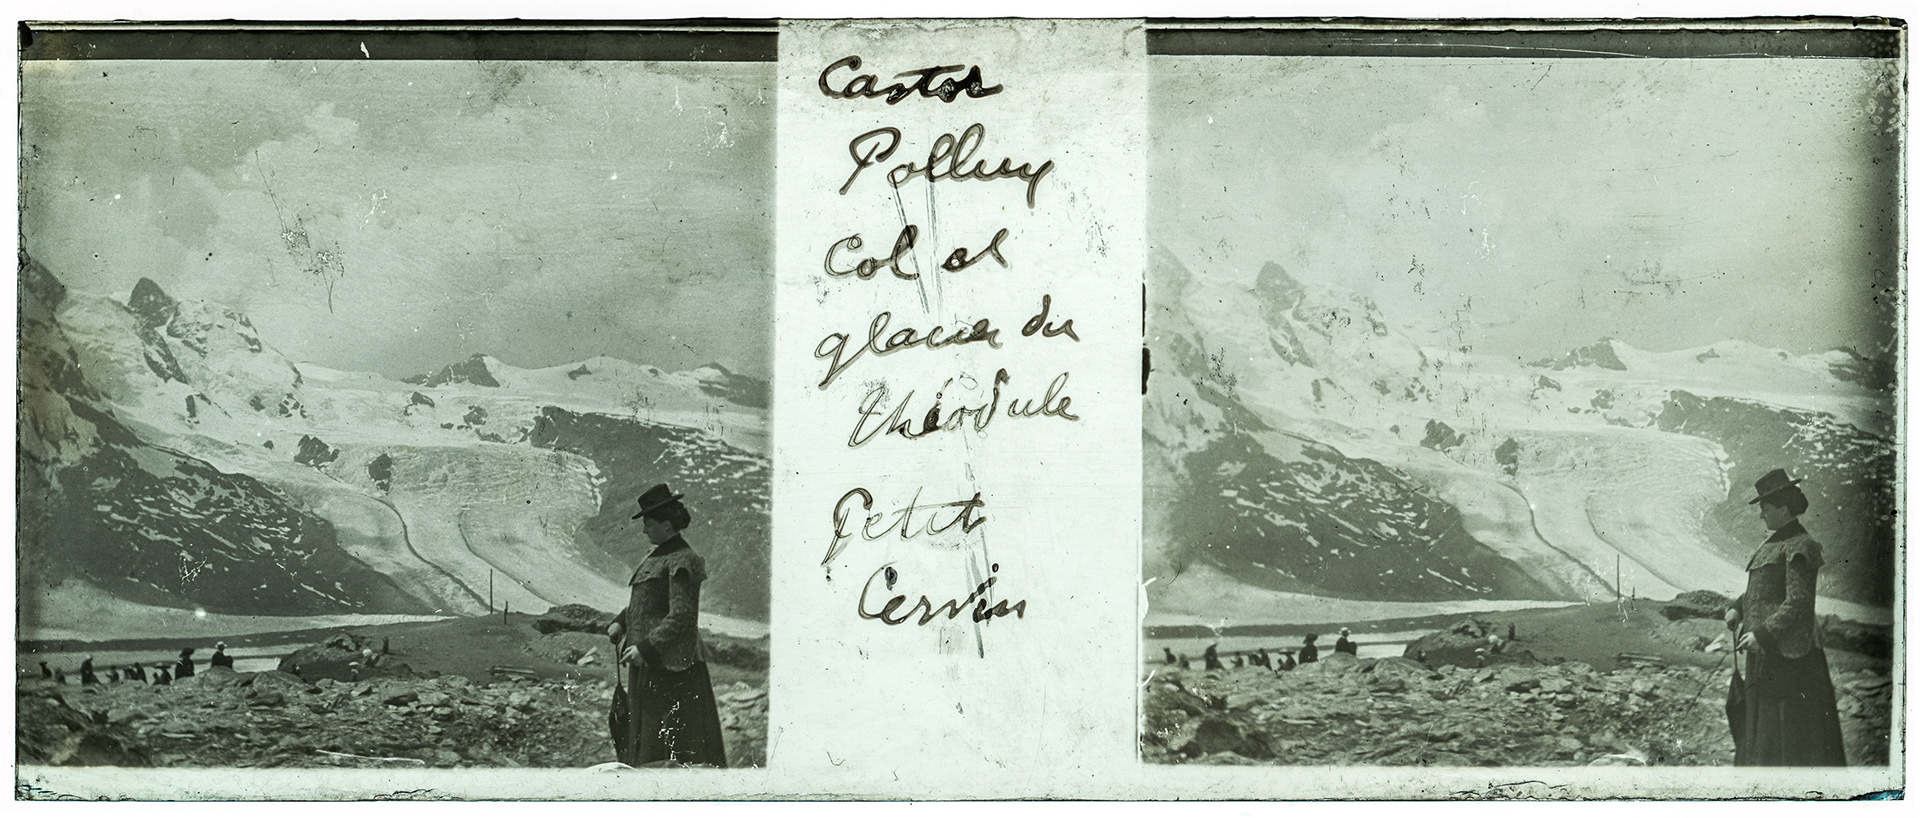 Castor
Pollux
Col et
glacier du
Théodule
Petit
Cervin